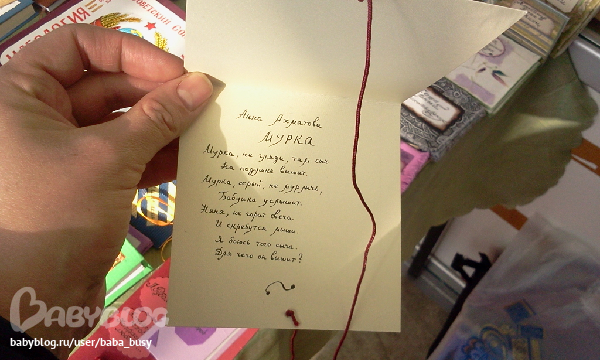 Советский
Анна Ахматова
МУРКА
Мурка, не ходи, там сыч
На подушке вышит.
Мурка, серый, не мурлычь,
Бабушка услышит.
Няня, не горит свеча
И скребутся мыши
Я боюсь того сыча.
Для чего он вышит?
BABYBLOG
babyblog.ru/user/baba_busy